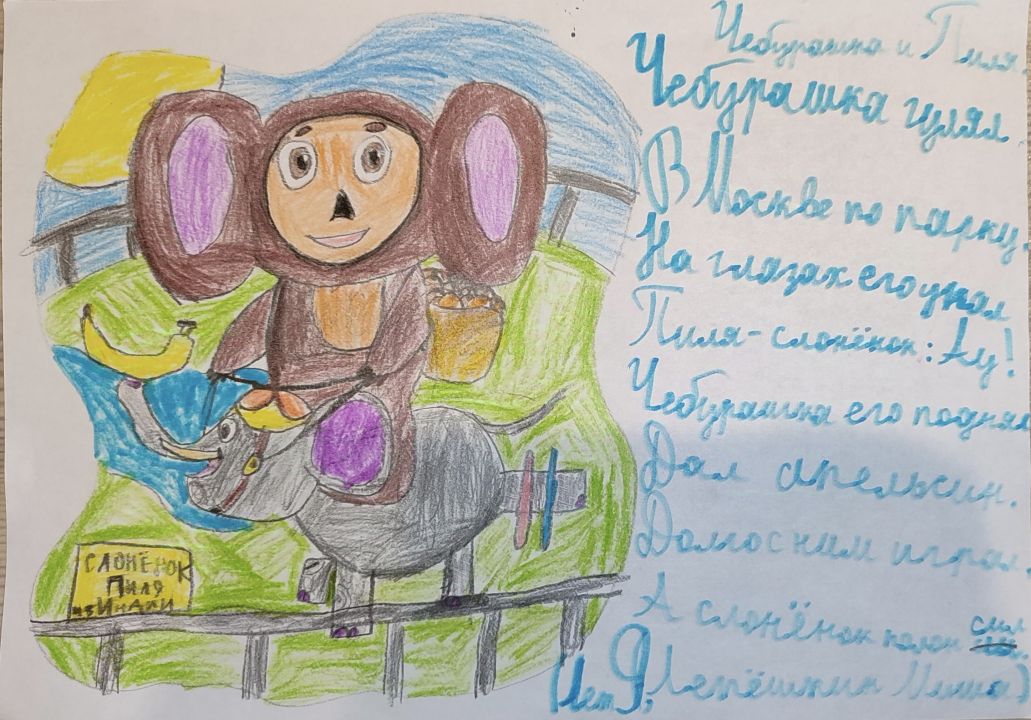 Чебурашка и Пиля.
Чебурашка гулял
В Москве по парку
На глазах его упал
Пиля-слонёнок: Ау!
Чебурашка его поднял
Дал апельсин.
Долго с ним играл.
А слонёнок полон сил
Лепёшкин Миша)
СЛОНЁНОК
Пиля
из Индии